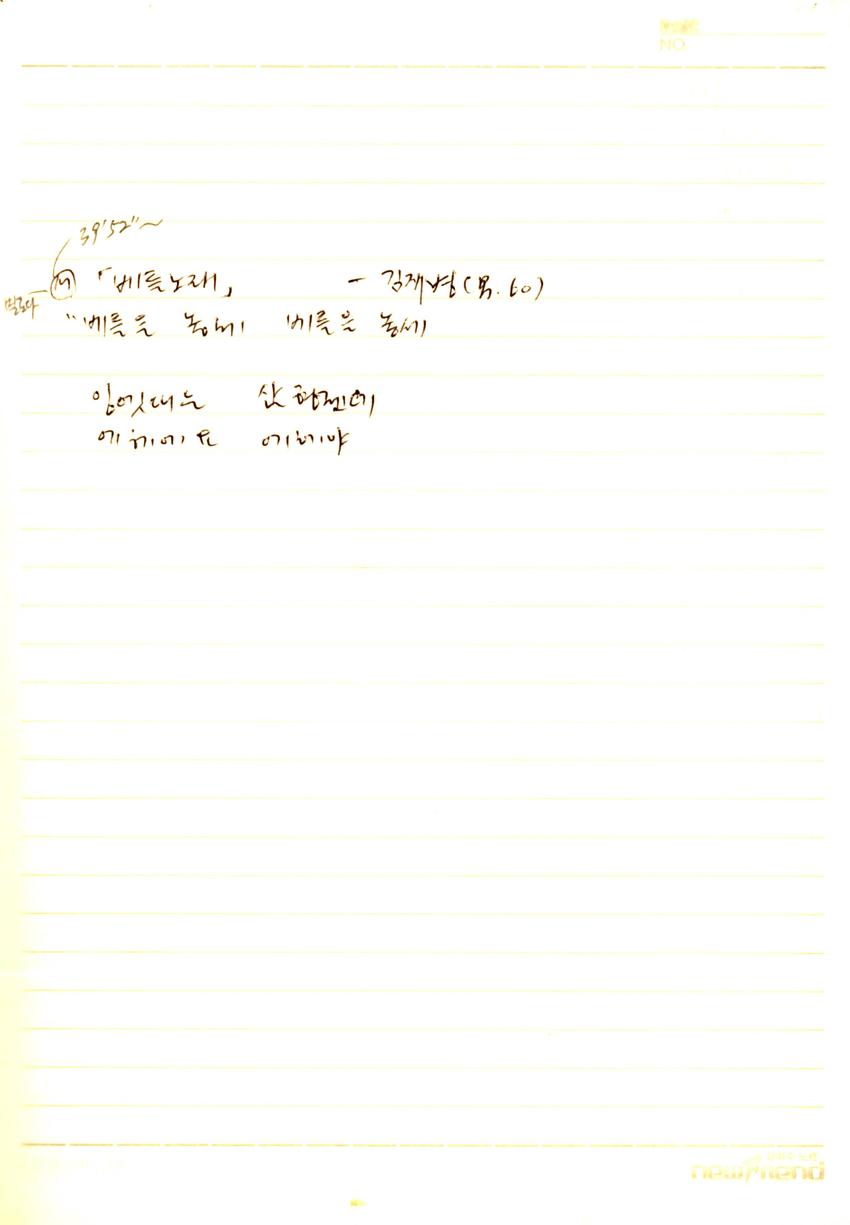 NO.
39'52"~
「베틀노래」 - 김재병(男. 60)
"베틀을 놓세 베틀을 놓세
잉엇대는 삼형젠데
에헤에요 에헤야
newfriend